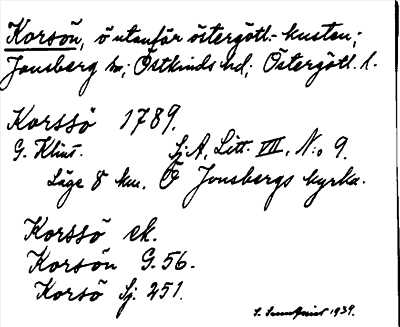 Korsön, ö utanför östergötl.-kusten;
Jonsberg sn; Östkinds hd; Östergötl. l.
Korssö 1789.
G. Klint. Sj.A, Litt. VII, N:o 9.
Läge 8 km. Ö Jonsbergs kyrka.
Korssö ek.
Korsön G.56.
Korsö Sj. 251.
1939.